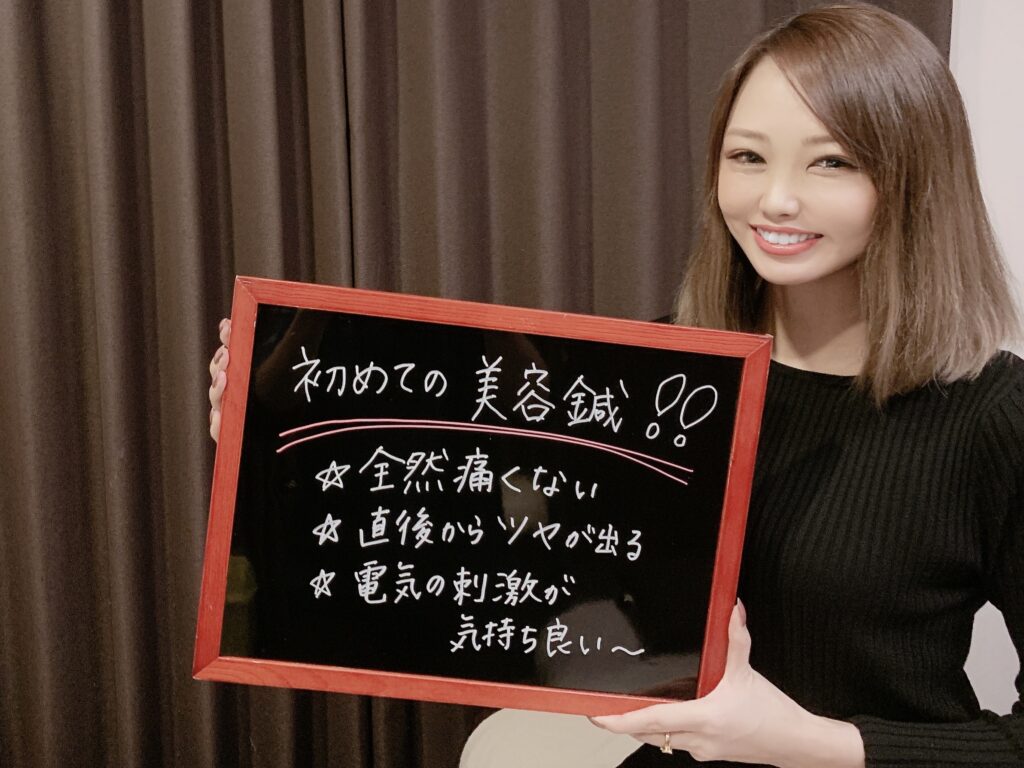 初めての 美容鍼!!
☆ 全然痛くない
☆ 直後からツヤが出る
☆ 電気の刺激が
気持ち良い〜